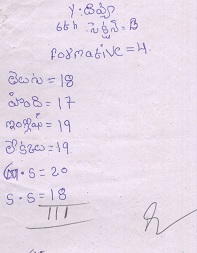 Y. దివ్య
6th సెక్షన్ = B
formative = 4.
తెలుగు = 18
హింది = 17
ఇంగ్లీష్ = 19
లెక్కలు = 19
S = 20
S . S = 18
111